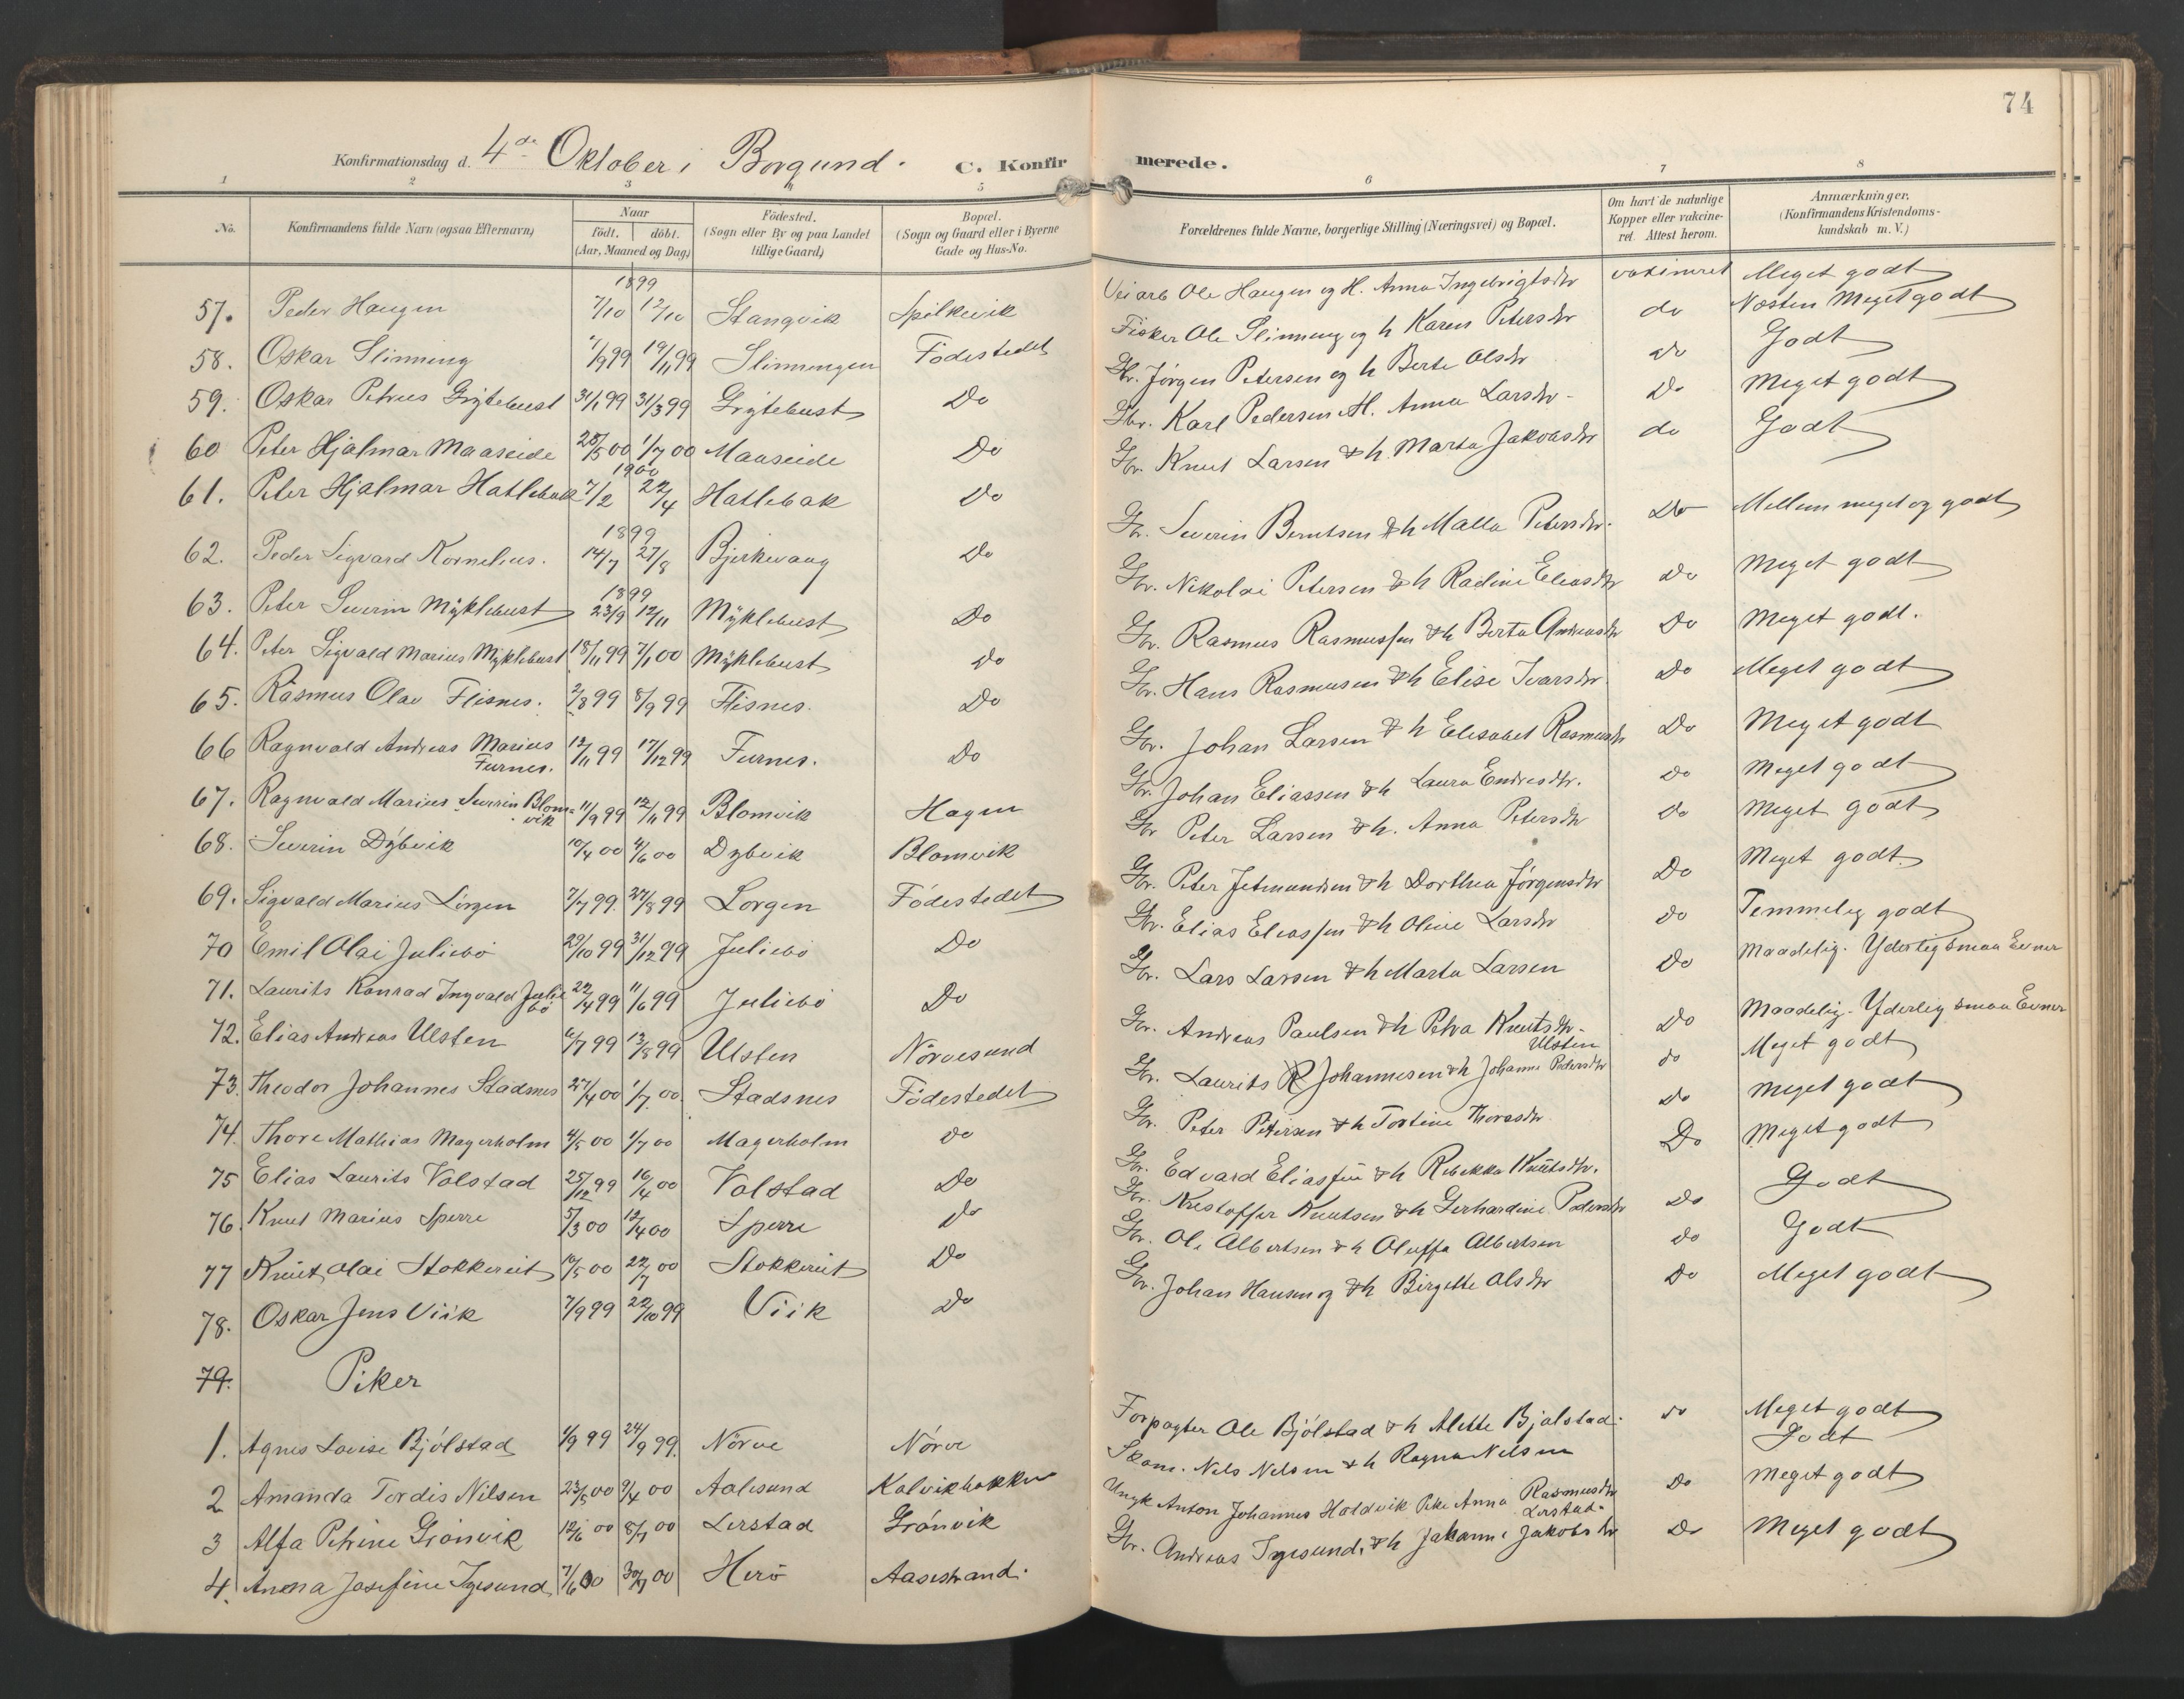 74
Konfirmationsdag d. 4de Oktober i Borgund. C. Konfirmerede.
1 2 3 4 5 6 7 8
No. Konfirmandens fulde Navn (ogsaa Efternavn) Naar født. døbt. (Aar, Maaned og Dag) Fødested. (Sogn eller By og paa Landet tillige Gaard) Bopæl. (Sogn og Gaard eller i Byerne Gade og Hus-No. Forældrenes fulde Navne, borgerlige Stilling (Næringsvei) og Bopæl. Om havt de naturlige Kopper eller vakcineret. Attest herom. Anmærkninger. (Konfirmandens Kristendomskundskab m. V.)
1899
57. Peder Haugen 7/10 12/10 Stangvik Spilkevik Veiarb Ole Haugen og H. Anna Ingebrigtsdtr vaksineret Meget godt
58. Oskar Slinning 7/9 99 19/11 99 Slinningen Födestedet Fisker Ole Slinning og h Karen Petersdtr do Næsten Meget godt
59. Oskar Petrus Grytebust 31/1 99 31/3 99 Grytebust Do Gbr. Jörgen Petersen og h Berte Olsdtr do Godt
60 Peter Hjalmar Maaseide 28/5 00 1/7 00 Maaseide Do Gbr. Karl Pedersen & H. Anna Larsdtr. Do Meget godt
1900
61. Peter Hjalmar Hatlebak 7/2 22/4 Hatlebak Do Gbr. Knut Larsen & h. Marta Jakobsdtr do Godt
1899
62. Peder Sigvard Kornelius. 14/7 27/8 Bjerkevaag Do Gbr. Severin Berntsen & h Malla Petersdtr. Do Mellem meget og godt
1899
63. Peter Severin Myklebust 23/9 12/11 Myklebust Do Gbr. Nikolai Petersen & h Radine Eliasdtr Do Meget godt
64. Peter Sigvald Marius Myklebust 18/11 99 7/1 00 Myklebust Do Gbr. Rasmus Rasmussen & h Berta Andreasdtr Do Meget godt.
65. Rasmus Olav Flisnes. 2/8 99 8/9 99 Flisnes. Do Gbr. Hans Rasmusen & h Elise Ivarsdtr Do Meget godt
66 Ragnvald Andreas Marius Furnes. 12/11 99 17/12 99 Furnes. Do Gbr. Johan Larsen & h Elisabet Rasmusdtr Do Meget godt
67. Ragnvald Marius Severin Blomvik 11/9 99 12/11 99 Blomvik Hagen Gbr. Johan Eliassen & h Laura Endresdtr. Do Meget godt
68. Severin Dybvik 10/4 00 4/6 00 Dybvik Blomvik Gbr Peter Larsen & h. Anna Petersdtr Do Meget godt
69. Sigvald Marius Lorgen 7/7 99. 27/8 99 Lorgen Födestedet Gbr. Peter Jetmundsen & h Dorthea Jörgensdtr Do Meget godt.
70 Emil Olai Juliebö 29/10 99 31/12 99 Juliebö Do Gbr. Elias Eliassen & h Oline Larsdtr Do Temmelig godt
71. Laurits Konrad Ingvald Juliebö 22/4 99 11/6 99 Juliebö Do Gbr. Lars Larsen & h Marta Larsen Do Maadelig. Yderlig smaa Evner
72. Elias Andreas Ulsten 6/7 99 13/8 99 Ulsten Nörvesund Gbr. Andreas Paulsen & h Petra Knutsdtr. Ulsten Do Maadelig. Yderlig smaa Evner
73. Theodor Johannes Stadsnes 27/4 00 1/7. 00 Stadsnes Födestedet Gbr. Laurits R Johannesen & h Johanne Pedersdtr do Meget godt
74. Thore Mathias Magerholm 4/5 00 1/7 00 Magerholm Do Gbr. Peter Petersen & h Tortine Thoresdtr. do Meget godt
75 Elias Laurits Valstad 25/12 99 16/4 00 Valstad Do Gbr. Edvard Eliassen & h Rebekka Knutsdtr. Do Meget godt
76. Knut Marius Sperre 5/3 00 12/4 00 Sperre Do Gbr. Kristoffer Knutsen & h Gerhardine Pedersdtr Do Godt
77 Knut Olai Stokkereit 10/5 00 22/7 00 Stokkereit Do Gbr. Ole Albertsen & h Oluffa Albertsen do Godt
78. Oskar Jens Viik 7/9 99 22/10 99 Viik Do Gbr. Johan Hansen og & h Birgitte Olsdtr Do Meget godt
79. Piker
1. Agnes Lovise Bjölstad 1/9 99 24/9 99. Nörve Nörve Forpagter Ole Bjölstad & h Alette Bjølstad. do Meget godt
2 Amanda Tordis Nilsen 23/5 00 9/4 00 Aalesund Kalvikbakken Skom. Nils Nilsen & h Ragna Nilsen Godt
3 Alfa Petrine Grönvik 12/6 00 8/7 00 Lerstad Grönvik Ungk Anton Johannes Haldvik Pike Anna Rasmusdtr Lerstad. Do Meget godt
4. Anna Josefine Igesund 7/6 00 30/7 00 Herö Aasestrand. Gbr. Andreas Igesund. & h Jakanne Jakobsdtr Do Meget godt